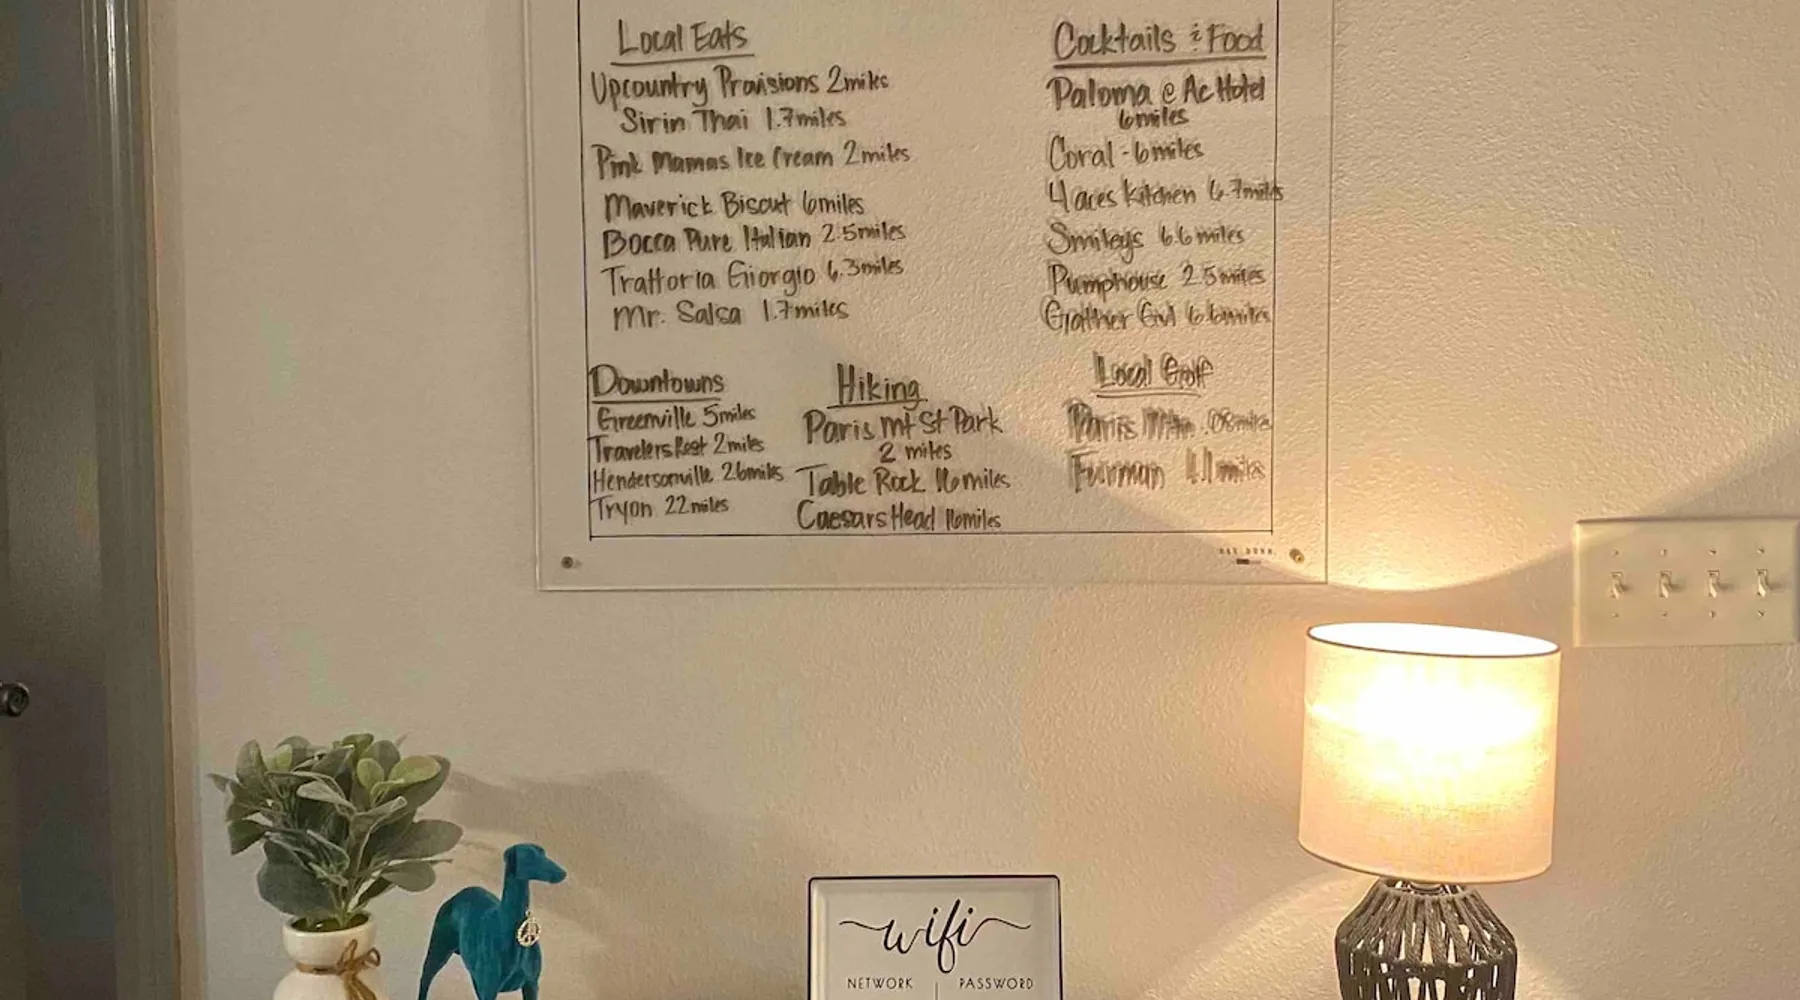 Local Eats
Upcountry Provisions 2miles
Sirin Thai 1.7miles
Pink Mamas Ice Cream 2miles
Maverick Biscut 6miles
Bocca Pure Italian 2.5miles
Trattoria Giorgio 6.3miles
Mr. Salsa 1.7miles
Cocktails & Food
Paloma @ Ac Hotel
6miles
Coral - 6miles
4 aces Kitchen 6.7miles
Smileys 6.6miles
Pumphouse 2.5miles
Gather Gvl 6.6miles
Downtowns
Greenville 5miles
Travelers Rest 2miles
Hendersonville 26miles
Tryon 22miles
Hiking
Paris mt St Park
2 miles
Table Rock 16miles
Caesars Head 16miles
Local Golf
Paris Mtn
Furman 4.1miles
wifi
NETWORK PASSWORD